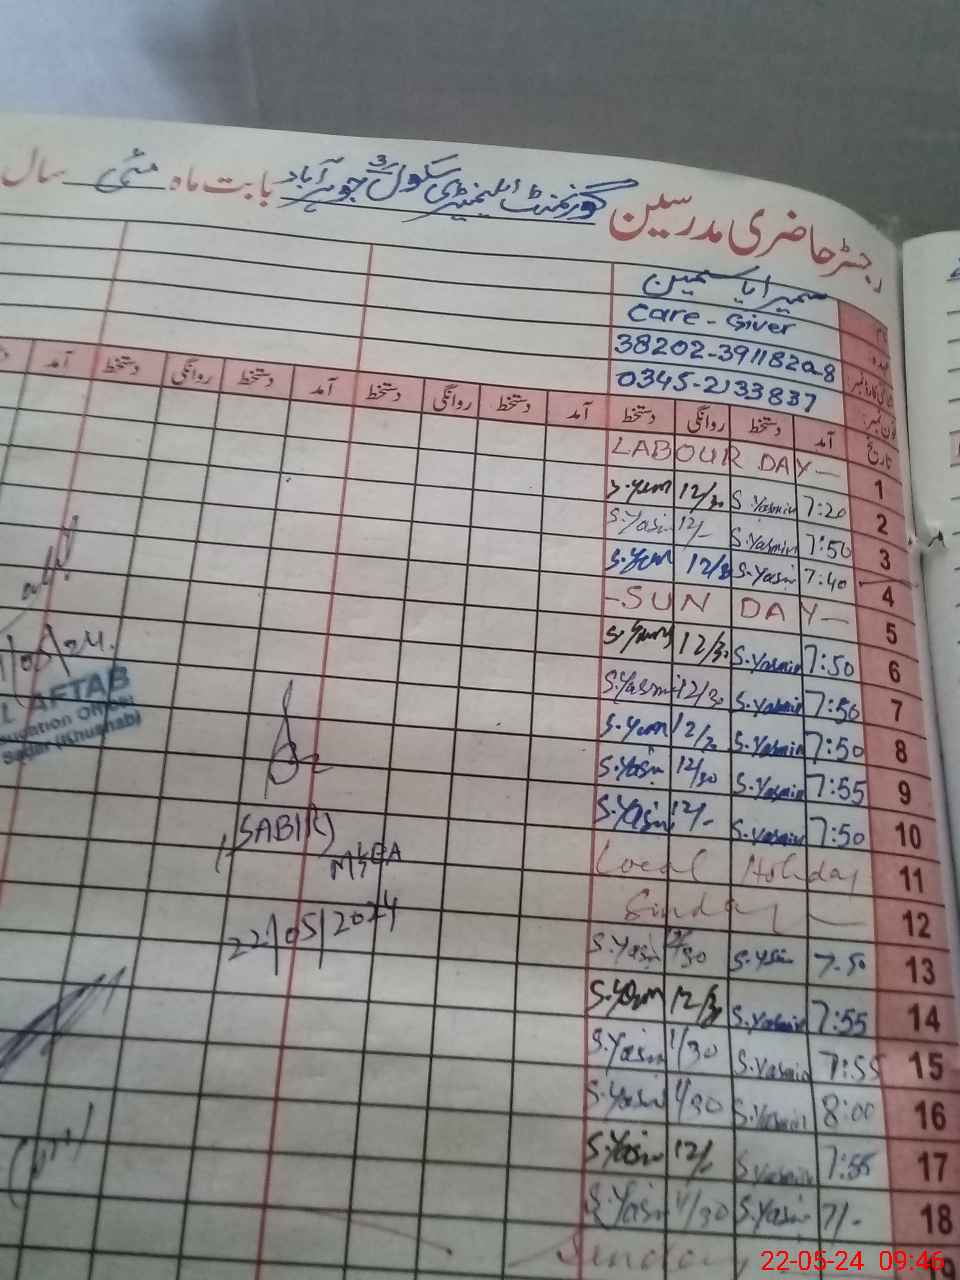 رجسٹر حاضری مدرسین گورنمنٹ ایلیمنٹری سکول 3 جوہرآباد بابت ماہ مئی سال
سمیرا یاسمین
Care-Giver
38202-3911820-8
0345-2133837
تاریخ آمد دستخط روانگی دستخط آمد دستخط روانگی دستخط آمد دستخط روانگی دستخط آمد
1 LABOUR DAY
2 7:20 S.Yasmin 12/30
3 7:50 S.Yasmin 12/- S.Yasin
4 7:40 S.Yasin 12/30
5 -SUN DAY-
6 7:50 S.Yasmin 12/30
7 7:50 S.Yasmin 12/30 S.Yasmi
8 7:50 S.Yasmin 12/30
9 7:55 S.Yasmin 12/30 S.Yasin
10 7:50 S.Yasmin 12/- S.Yasin
11 Local Holiday
12 Sunday
13 7-50 12/30 S.Yasin
14 7:55 S.Yasmin 12/30
15 7:55 S.Yasmin 1/30 S.Yasin
16 8:00 S.Yasmin 1/30 S.Yasin
17 7:55 S.Yasmin 12/- S.Yasin
18 7/- S.Yasin 11/30 S.Yasin
Sunday
AFTAB
Education Officer
Sadar (Khushab)
SABIR
MEA
22/05/2024
22-05-24 09:46